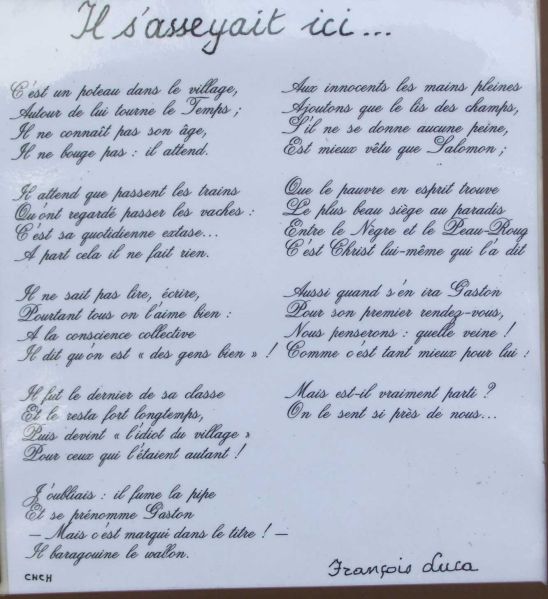 Il s'asseyait ici...
C'est un poteau dans le village,
Autour de lui tourne le Temps ;
Il ne connaît pas son âge,
Il ne bouge pas : il attend.
Il attend que passent les trains
Qu'ont regardé passer les vaches :
C'est sa quotidienne extase...
A part cela il ne fait rien.
Il ne sait pas lire, écrire,
Pourtant tous on l'aime bien :
A la conscience collective
Il dit qu'on est « des gens bien » !
Il fut le dernier de sa classe
Et le resta fort longtemps,
Puis devint « l'idiot du village »
Pour ceux qui l'étaient autant !
J'oubliais : il fume la pipe
Et se prénomme Gaston
— Mais c'est marqui dans le titre ! —
Il baragouine le wallon.
Aux innocents les mains pleines
Ajoutons que le lis des champs,
S'il ne se donne aucune peine,
Est mieux vêtu que Salomon ;
Que le pauvre en esprit trouve
Le plus beau siège au paradis
Entre le Nègre et le Peau-Roug
C'est Christ lui-même qui l'a dit
Aussi quand s'en ira Gaston
Pour son premier rendez-vous,
Nous penserons : quelle veine !
Comme c'est tant mieux pour lui !
Mais est-il vraiment parti ?
On le sent si près de nous...
François Luca
CHCH